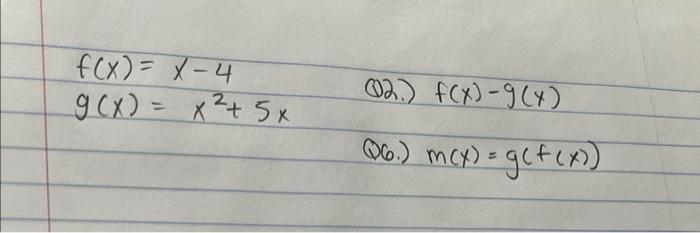 f(x) = x - 4
g(x) = x² + 5x
Q2.) f(x) - g(x)
Q6.) m(x) = g(f(x))